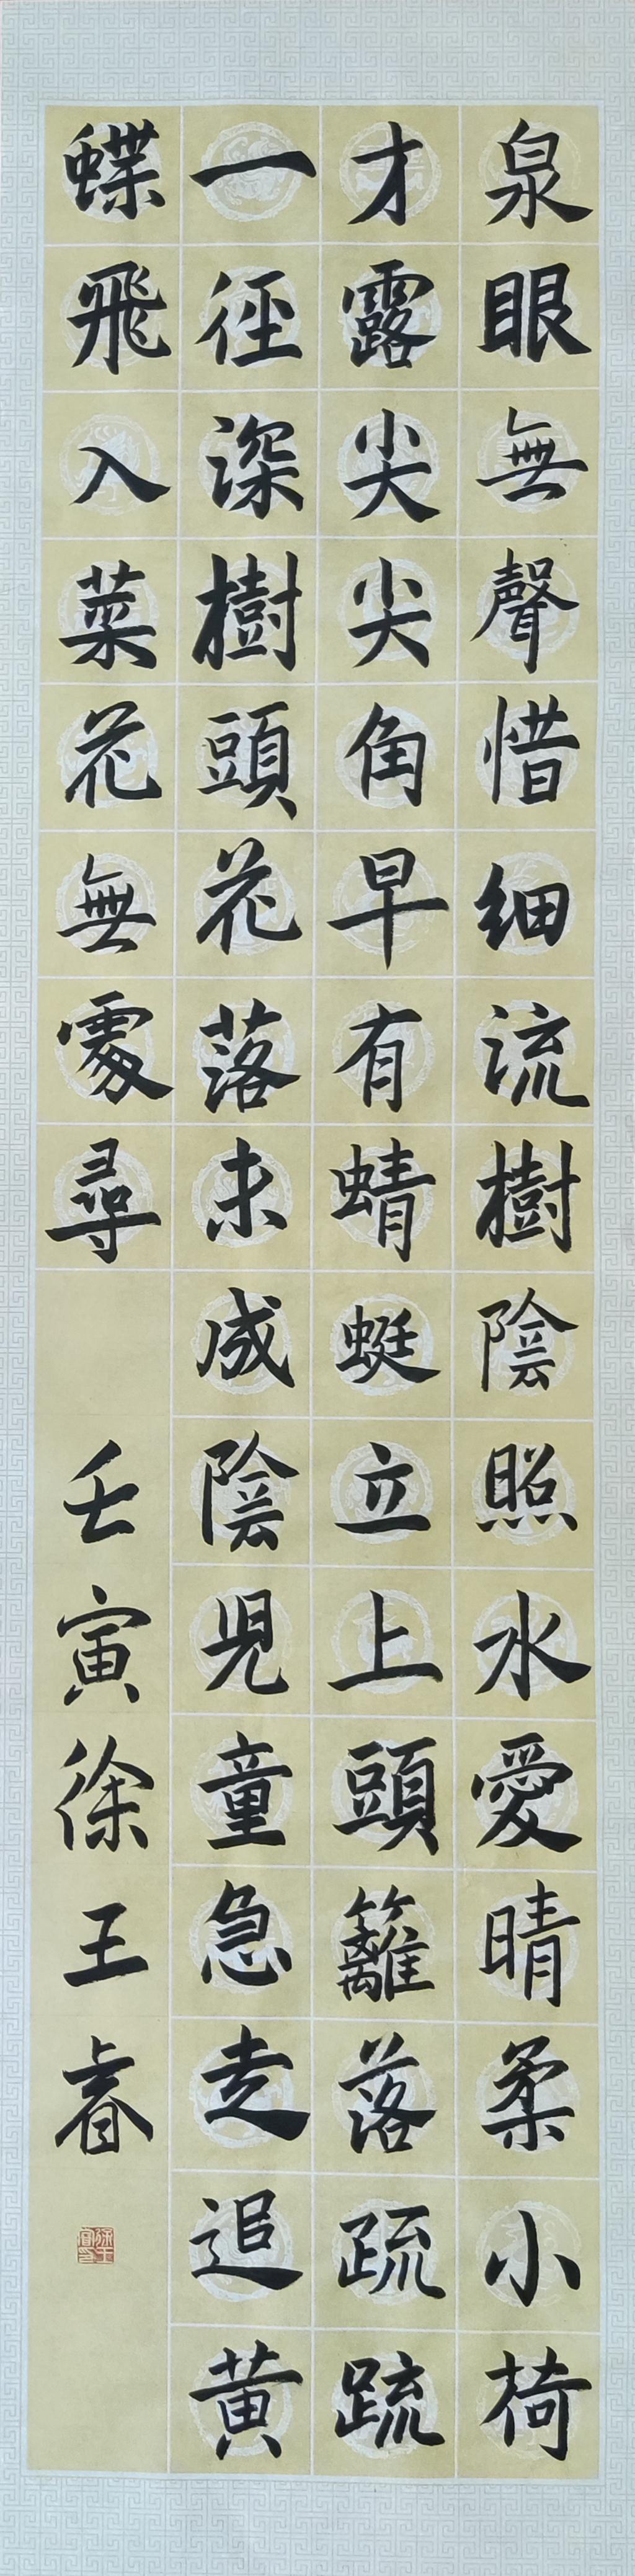 泉眼無聲惜细流樹陰照水愛晴柔小椅
才露尖尖角早有蜻蜓立上頭籬落疏疏
一徑深樹頭花落未成陰兒童急走追黄
蝶飛入菜花無處尋
壬寅徐王睿